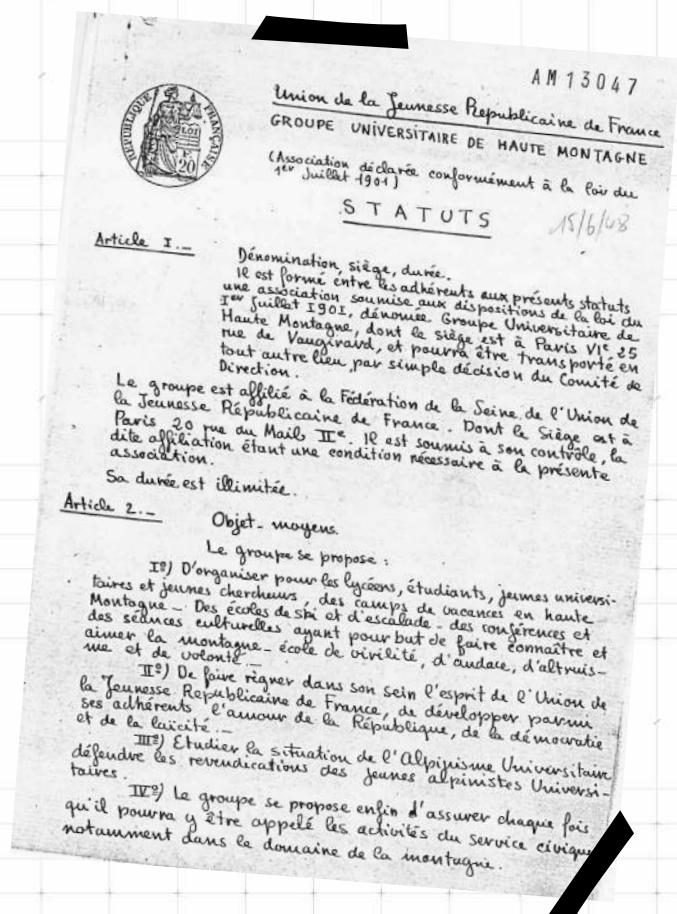 AM13047
RÉPUBLIQUE FRANÇAISE
LOI
20
Union de la Jeunesse Republicaine de France
GROUPE UNIVERSITAIRE DE HAUTE MONTAGNE
(Association déclarée conformément à la loi du
1er Juillet 1901)
STATUTS
15/6/48
Article I._
Dénomination, siège, durée.
Il est formé entre les adhérents aux présents statuts
une association soumise aux dispositions de la loi du
Ier Juillet 1901, dénomée Groupe Universitaire de
Haute Montagne, dont le siège est à Paris VIe 25
rue de Vaugirard, et pourra être transporté en
tout autre lieu par simple décision du Comité de
Direction.
Le groupe est affilié à la Fédération de la Seine de l'Union de
la Jeunesse Républicaine de France. Dont le Siège est à
Paris 20 rue du Mail IIe. Il est soumis à son contrôle, la
dite affiliation étant une condition nécessaire à la présente
association.
Sa durée est illimitée.
Article 2._
Objet - moyens.
Le groupe se propose :
Iº) D'organiser pour les lycéens, étudiants, jeunes universi-
taires et jeunes chercheurs, des camps de vacances en haute
Montagne _ Des écoles de ski et d'escalade - des conférences et
des séances culturelles ayant pour but de faire connaître et
aimer la montagne - école de virilité, d'audace, d'altruis-
me et de volonté _
IIº) De faire règner dans son sein l'esprit de l'Union de
la Jeunesse Republicaine de France, de développer parmi
ses adhérents l'amour de la République, de la démocratie
et de la laïcité. _
IIIº) Etudier la situation de l'Alpinisme Universitaire
défendre les revendications des jeunes alpinistes Universi-
taires.
IVº) Le groupe se propose enfin d'assurer chaque fois
qu'il pourra y être appelé les activités du service civique
notamment dans le domaine de la montagne.